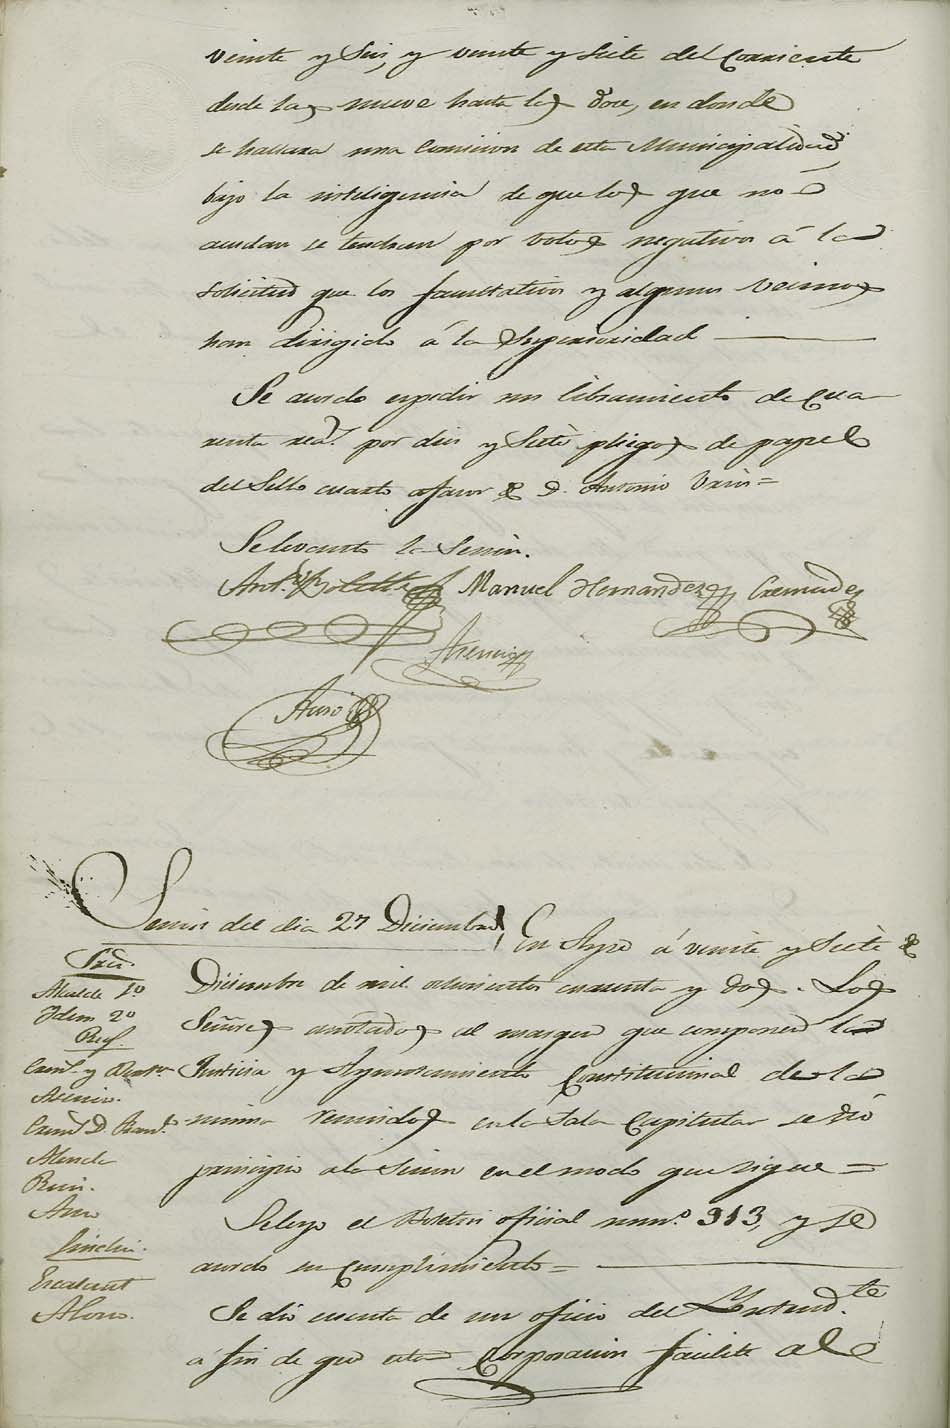 veinte y Seis, y veinte y Siete del Corriente
desde las nueve hasta las doce, en donde
se hallara una Comision de esta Municipalidad,
bajo la inteligencia de que los que no á
cudan se tendran por votos negativos á la
solicitud que los facultativos y algunos Vecinos
han dirigido á la Superioridad
Se acordo expedir un libramiento de Cua
renta rea.s por dies y Siete pliegos de papel
del Sello cuarto afavor de D. Antonio
Se levanto la Sesion.
Manuel Hernandez Cremades
Asencio
Auso
Sesion del dia 27 Diciembre
En Aspe á veinte y Siete de
Diciembre de mil ochocientos cuarenta y dos. Los
Señores anotados al margen que componen la
Justicia y Ayuntamiento Constitucional de la
misma reunidos en la Sala Capitular se dió
principio a la Sesion en el modo que sigue =
Se leyo el Boletin oficial num.o 313, y se
acordo su cumplimiento =
Se dió cuenta de un oficio del Intend.te
á fin de que esta Corporacion facilite al
Pres.
Alcalde 1o
Idem 2o
Reg.
Asencio.
Alenda
Ruiz.
Auso
Sindic.
Escalant
Alonso.